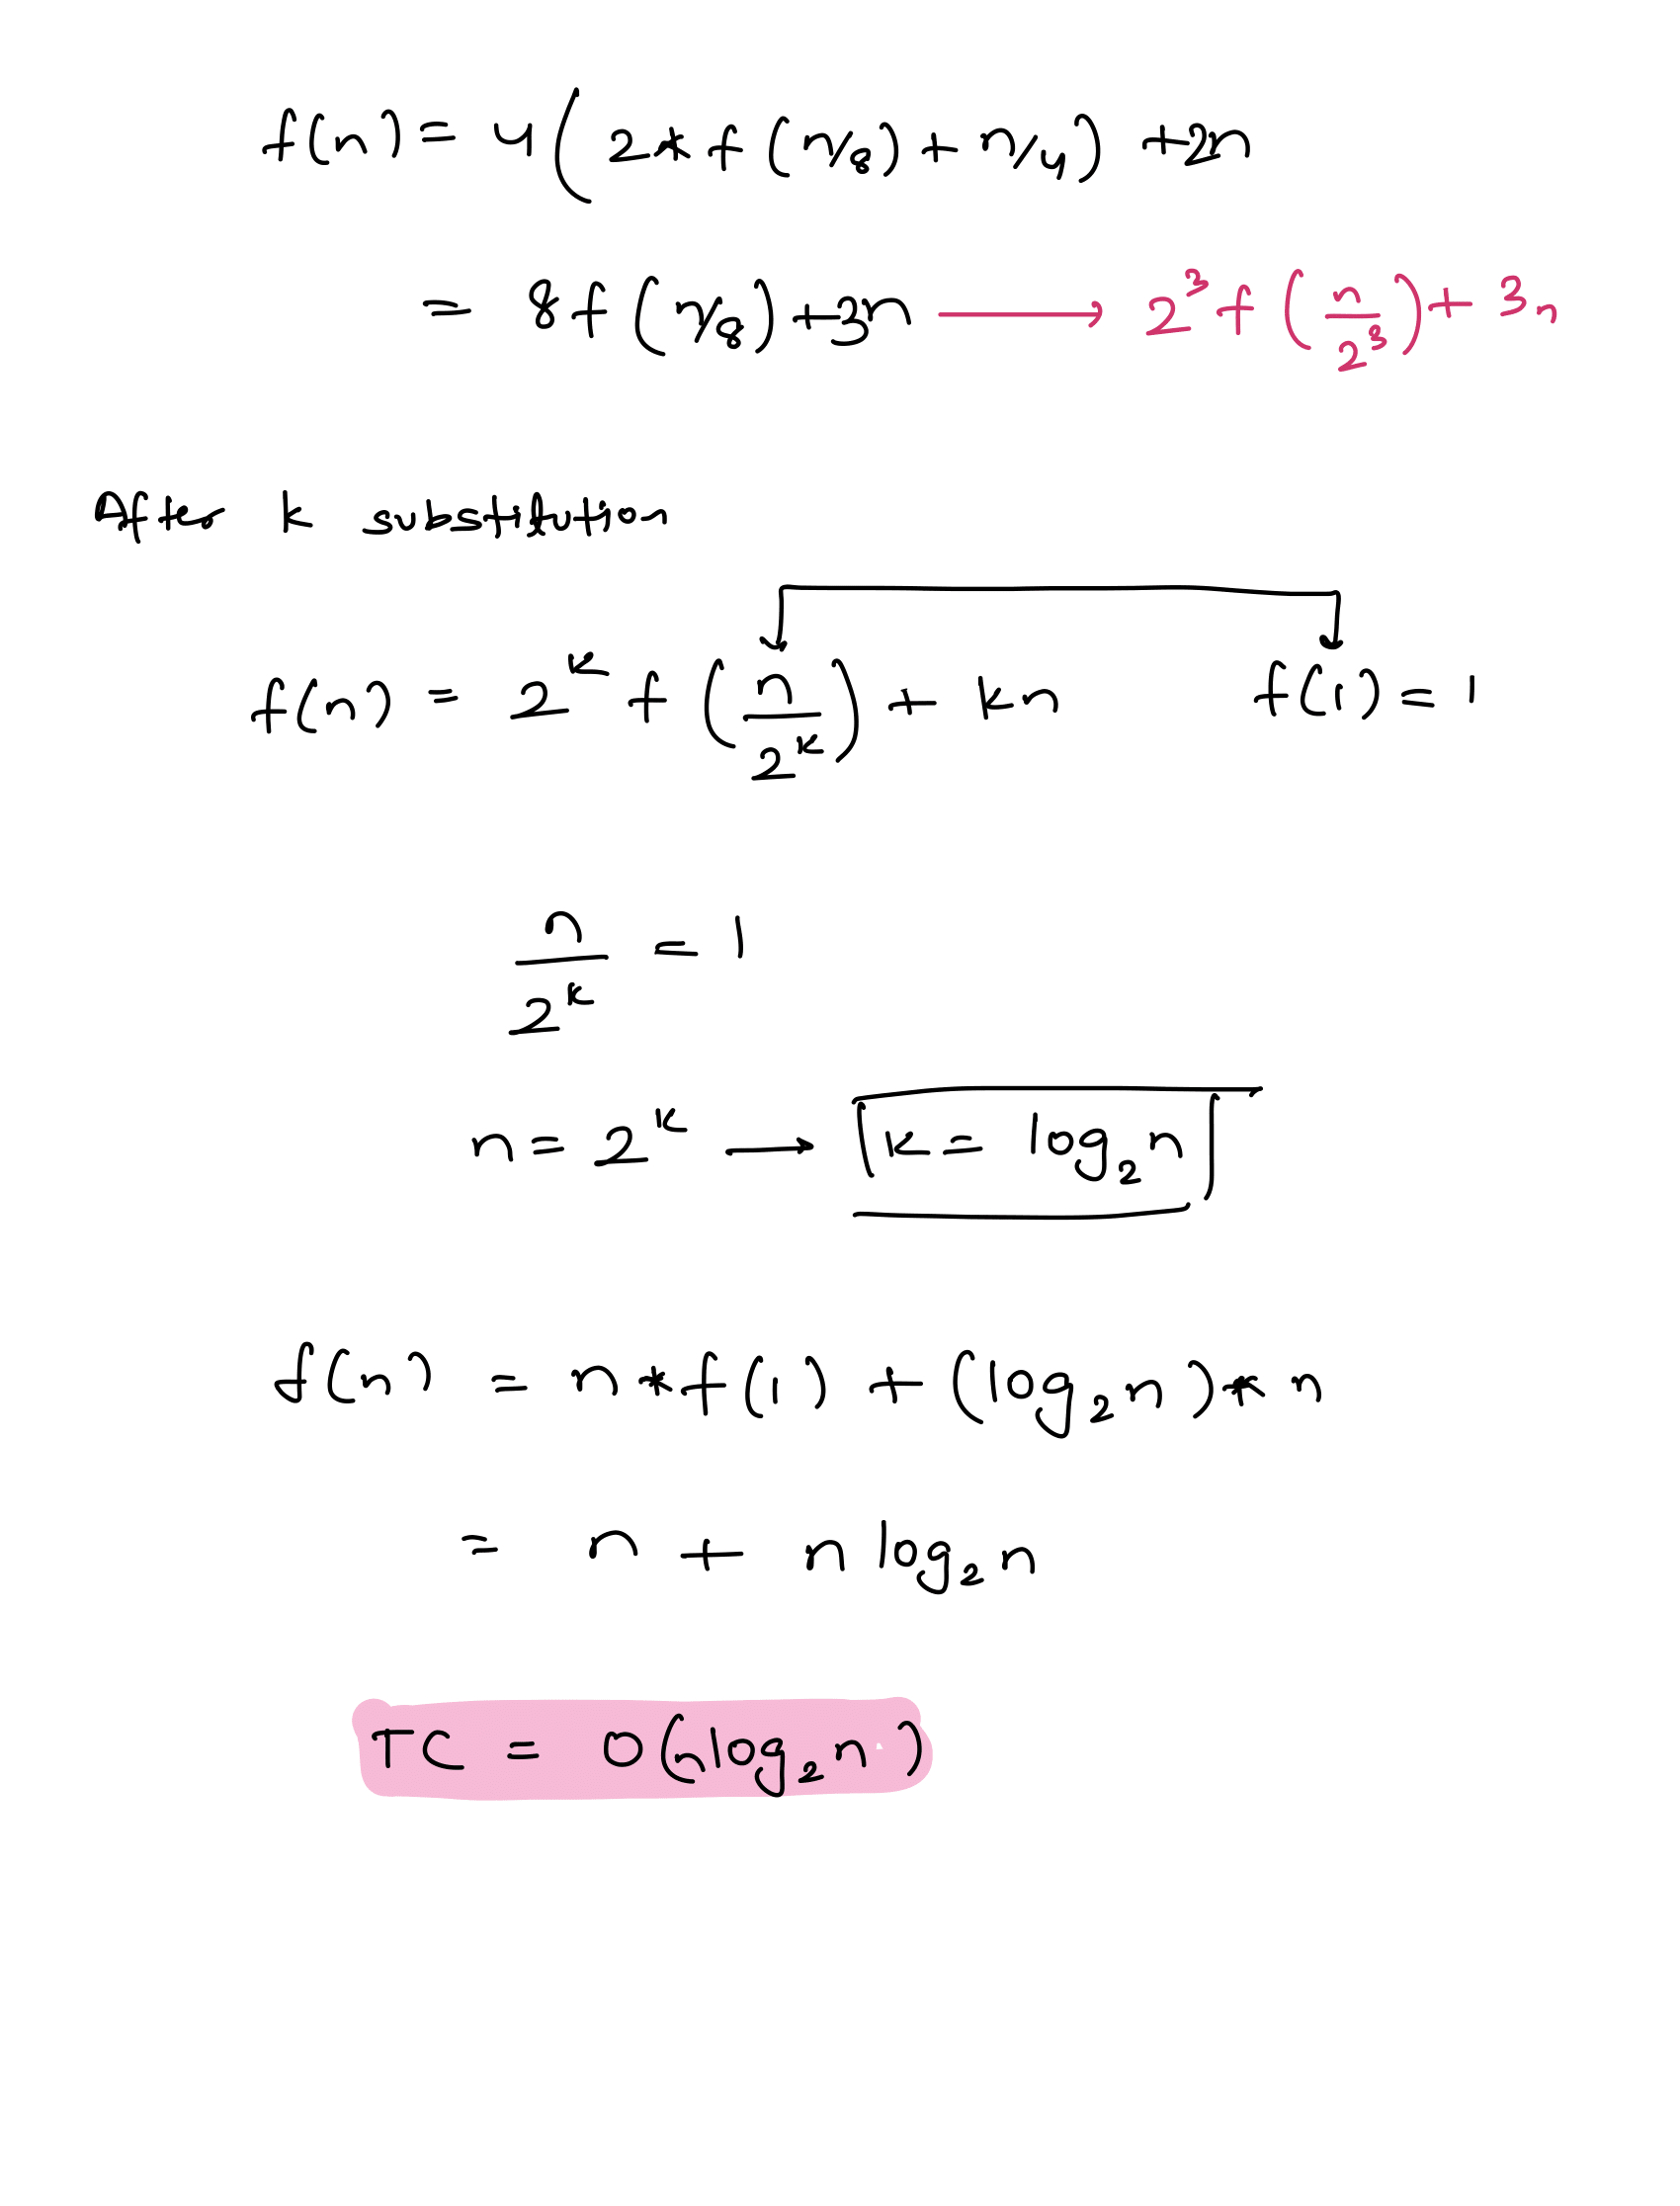 f(n) = 4(2*f(n/8) + n/4) + 2n
= 8f(n/8) + 3n ⟶ 2³f(n/2³) + 3n
After k substitution
f(n) = 2^k f(n/2^k) + kn f(1) = 1
n/2^k = 1
n = 2^k ⟶ k = log₂n
f(n) = n*f(1) + (log₂n)*n
= n + n log₂n
TC = O(nlog₂n)